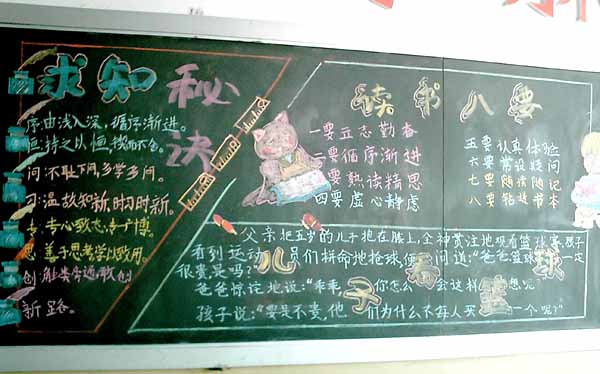 求知秘诀
序:由浅入深，循序渐进。
恒:持之以恒，锲而不舍。
问:不耻下问，多学多问。
习:温故知新，时习时新。
专:专心致志，专广博。
思:善于思考，学以致用。
创:触类旁通，敢创
新路。
读书八要
一要立志勤奋
二要循序渐进
三要熟读精思
四要虚心静虑
五要认真体验
六要常设疑问
七要随读随记
八要 书本
儿子看篮球
父亲把五岁的儿子抱在膝上，全神贯注地观看篮球赛，孩子
看到运动员们拼命地抢球，便问道：“爸爸篮球 一定
很贵是吗？”
爸爸惊诧地说：“乖乖，你怎么会这样想呢？
孩子说：“要是不贵，他们为什么不每人买一个呢？”